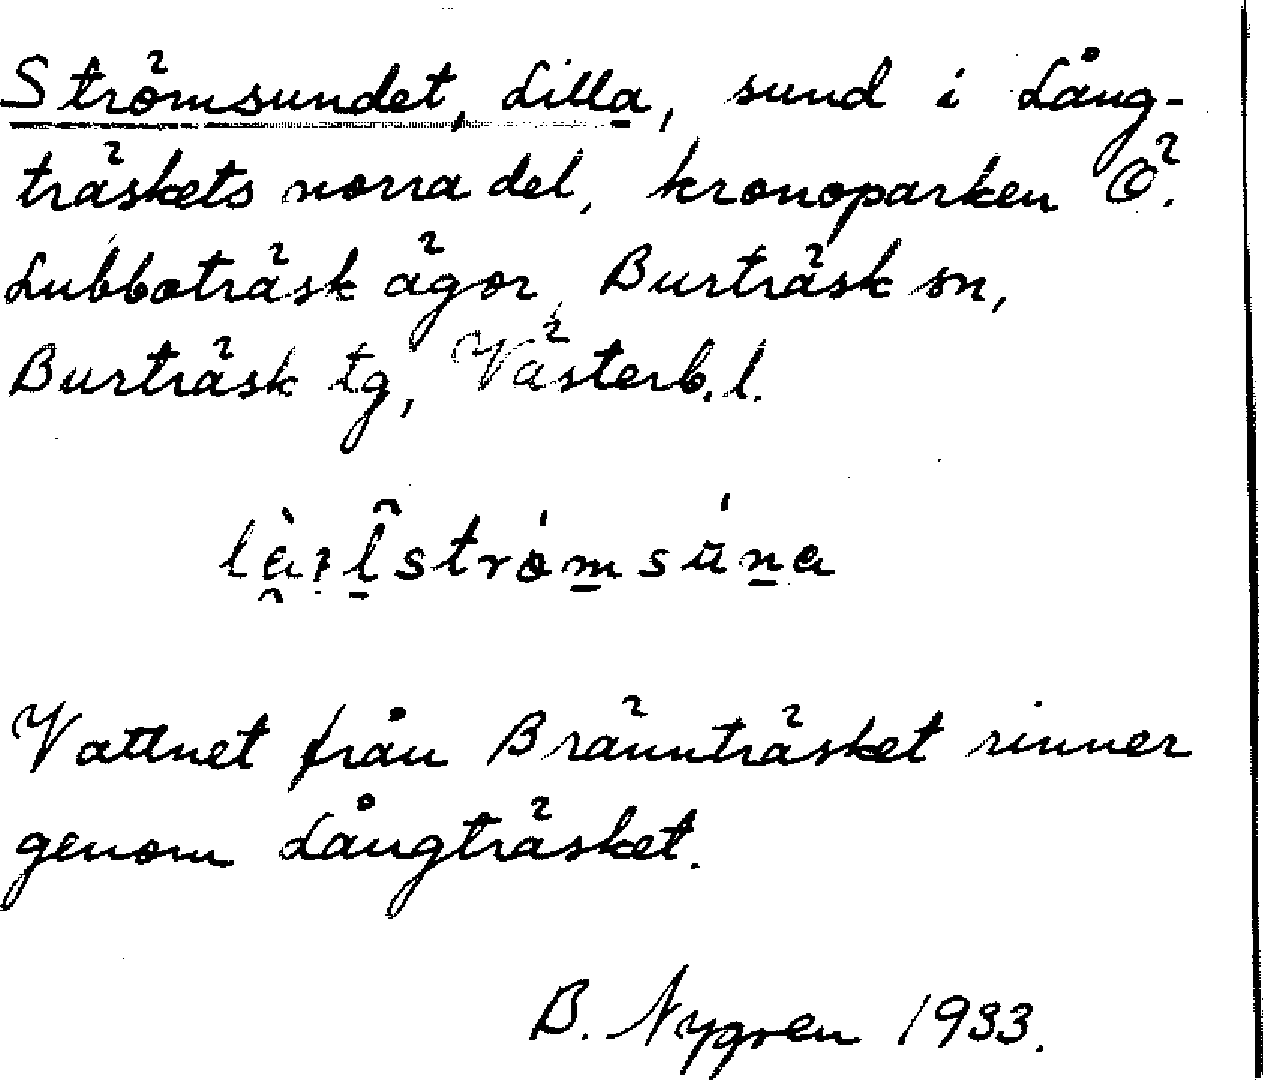 Strömsundet, Lilla, sund i Lång-
träskets norra del, kronoparken Ö.
Lubboträsk ägor, Burträsk sn,
Burträsk tg, Västerb. l.
Vattnet från Brännträsket rinner
genom Långträsket.
B. Nygren 1933.